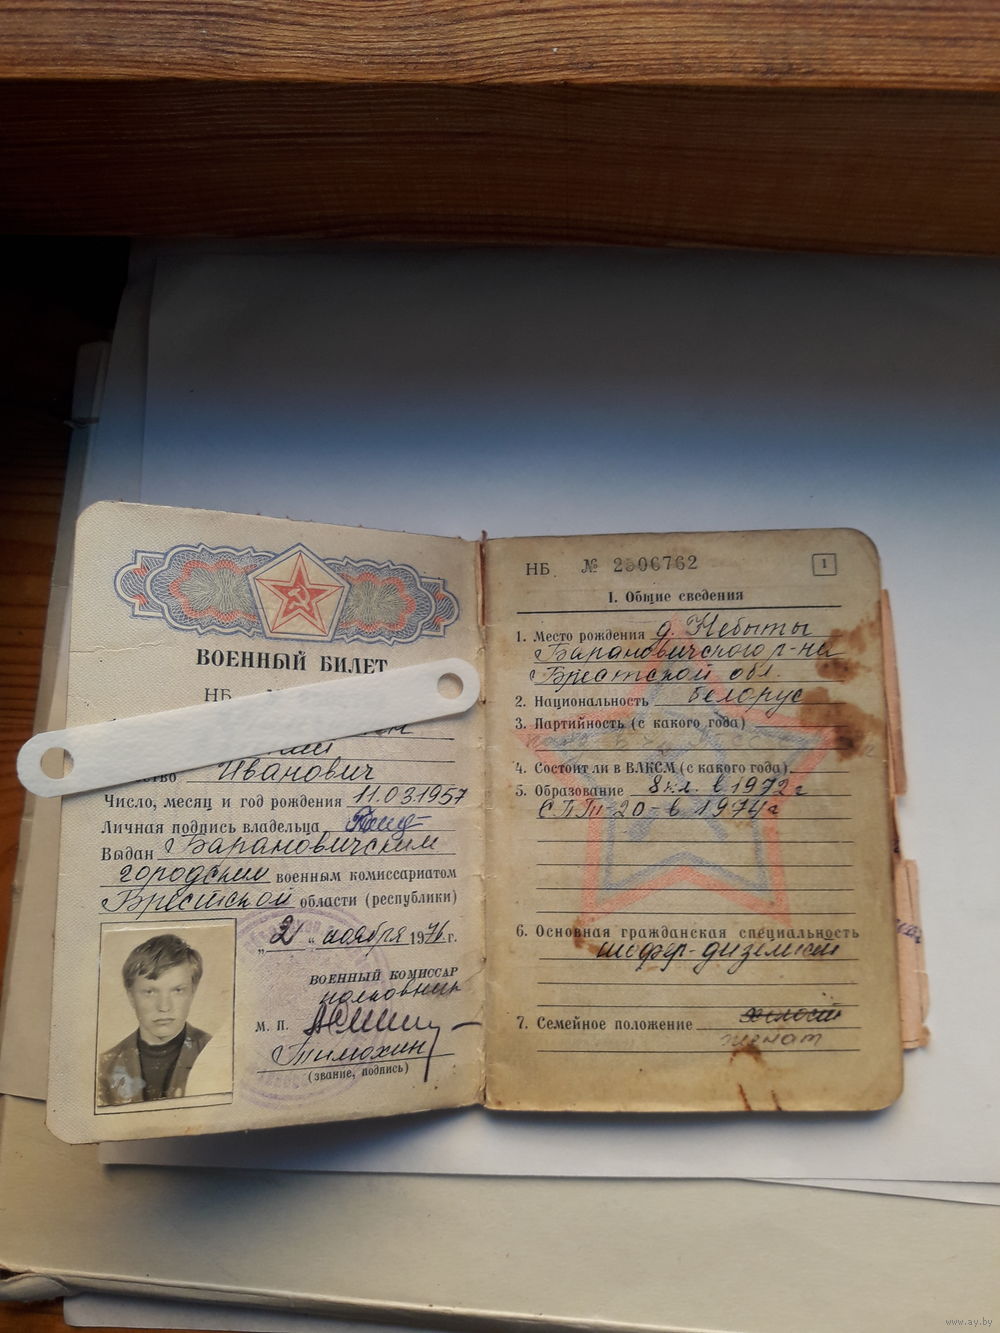 ВОЕННЫЙ БИЛЕТ
НБ
Иванович
Число, месяц и год рождения 11.03.1957
Личная подпись владельца
Выдан Барановичским
городским военным комиссариатом
Брестской области (республики)
„2“ ноября 1976 г.
ВОЕННЫЙ КОМИССАР
полковник
М. П.
Тимохин
(звание, подпись)
НБ № 2506762
1
I. Общие сведения
1. Место рождения д. Небыты
Барановичского р-на
Брестской обл.
2. Национальность белорус
3. Партийность (с какого года)
4. Состоит ли в ВЛКСМ (с какого года)
5. Образование 8 кл. в 1972 г
СПТУ-20 в 1974 г
6. Основная гражданская специальность
7. Семейное положение холост
женат
www.ay.by